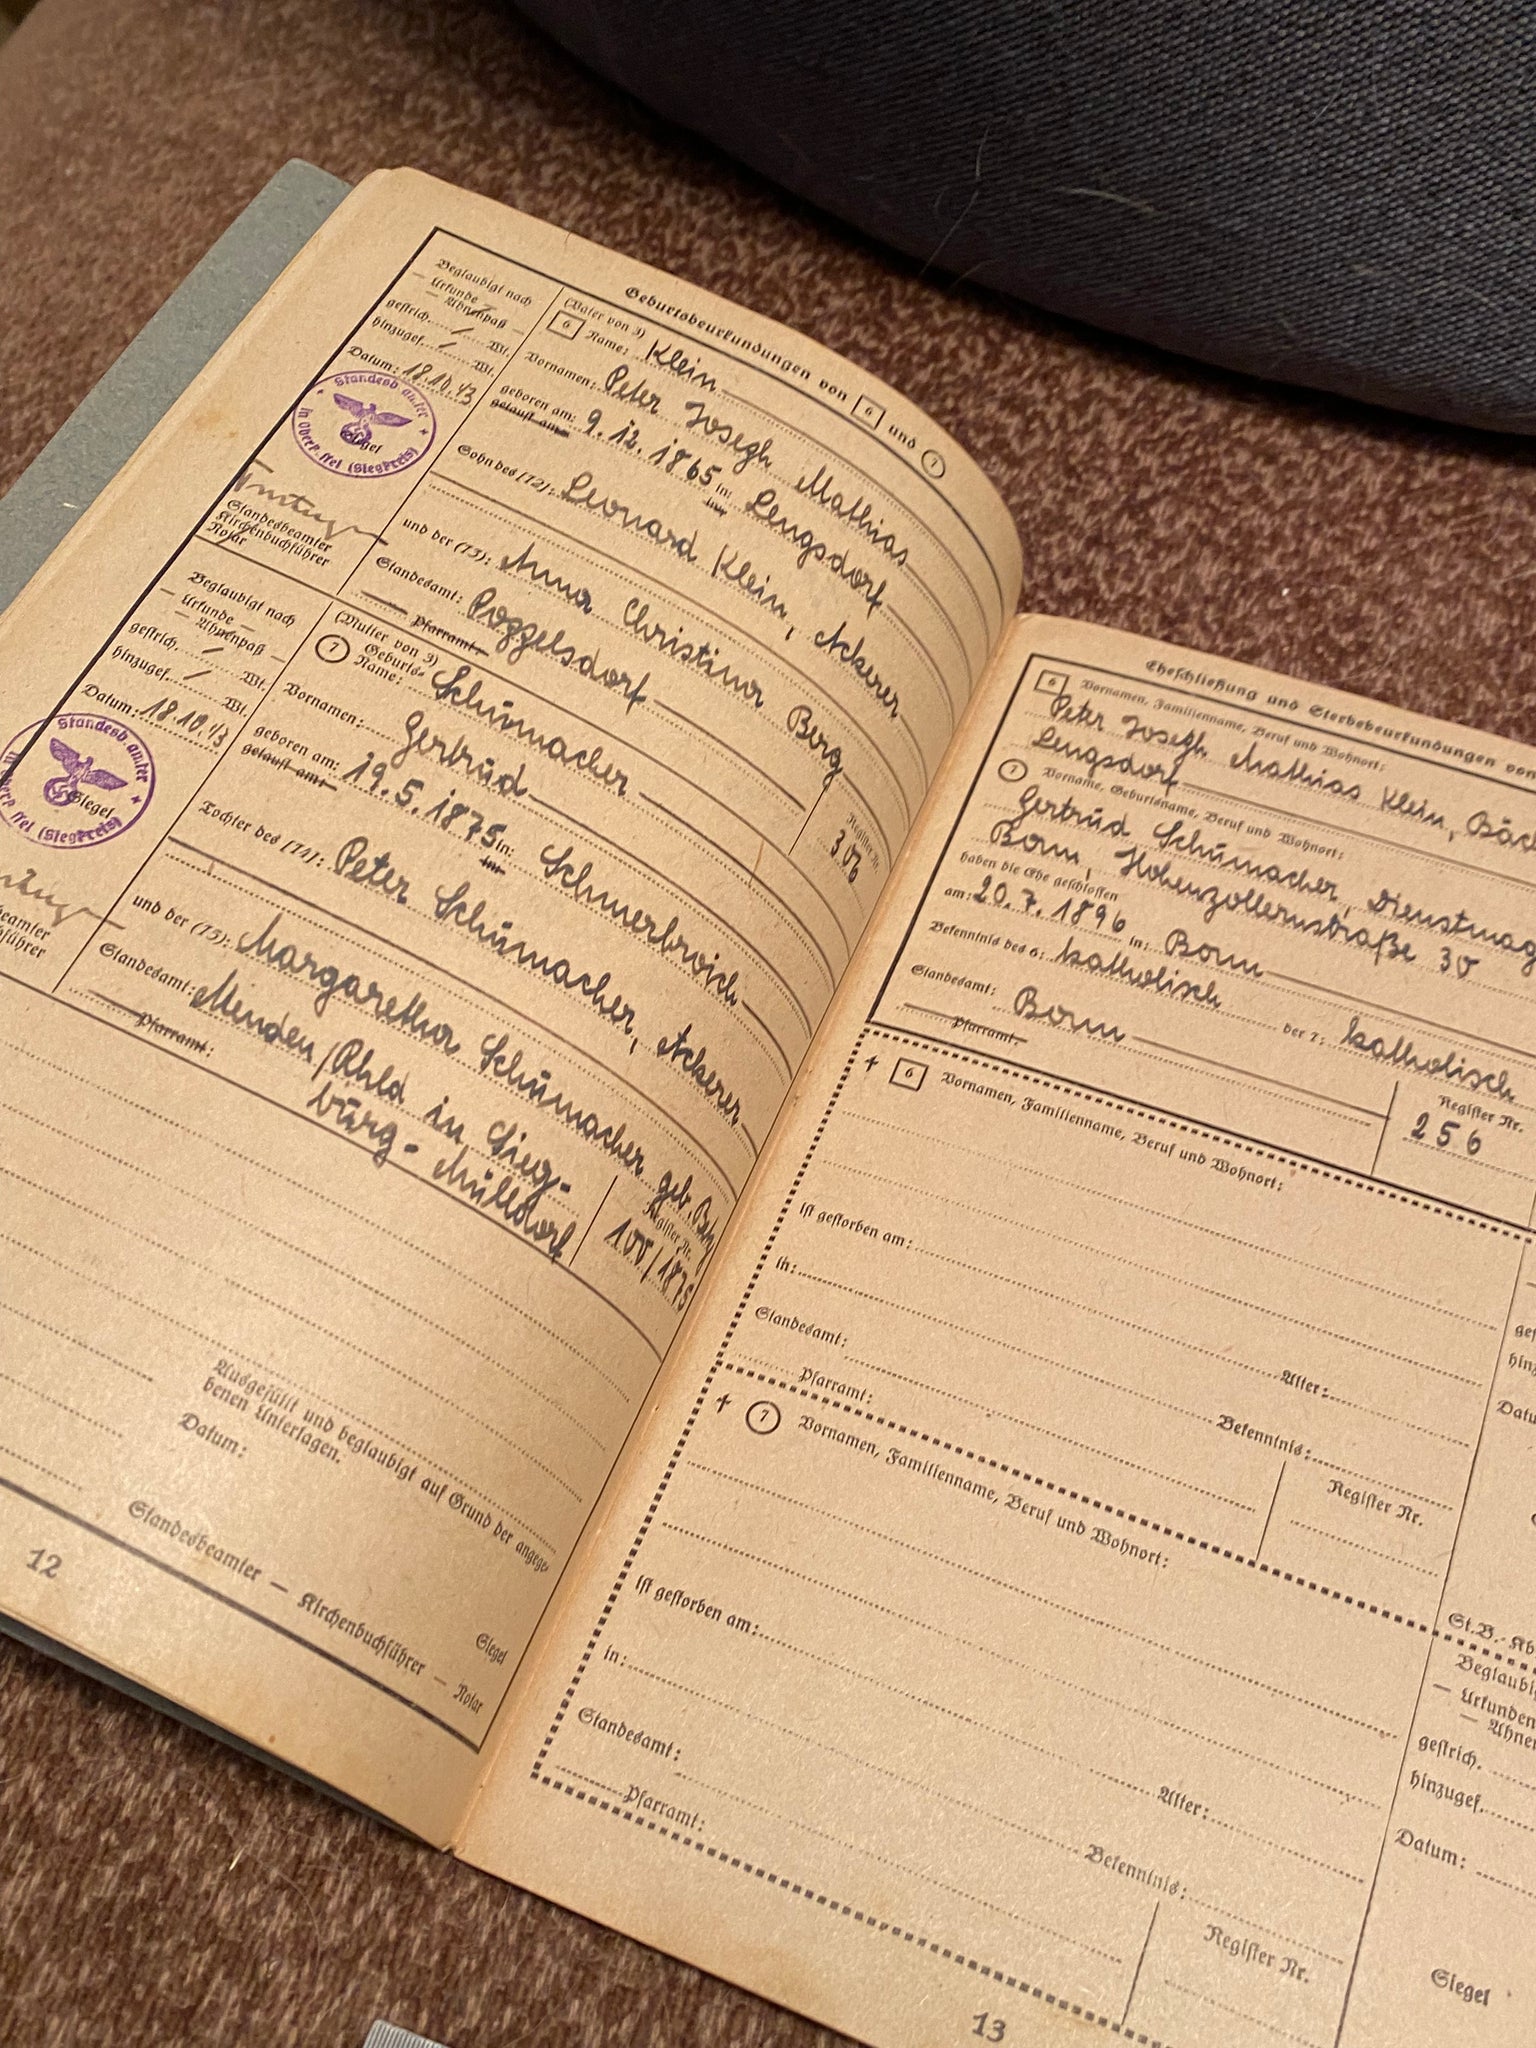 Geburtsbeurkundungen von 6 und 7
Beglaubigt nach
— Urkunde —
— Ahnenpaß —
gestrich. / Wt.
hinzugef. / Wt.
Datum: 18.10.43
Standesbeamter
in Oberk ssel (Siegkreis)
Siegel
Standesbeamter
Kirchenbuchführer
Notar
(Vater von 3)
6 Name: Klein
Vornamen: Peter Joseph Mathias
geboren am: 9.12.1865 in: Lengsdorf
getauft am:
Sohn des (12): Leonard Klein, Ackerer
und der (13): Anna Christina Berg
Standesamt: Poppelsdorf
Pfarramt:
Register Nr.
306
Beglaubigt nach
— Urkunde —
— Ahnenpaß —
gestrich. / Wt.
hinzugef. / Wt.
Datum: 18.10.43
Standesb amter
(Siegkreis)
Siegel
beamter
führer
(Mutter von 3)
7 Geburts-
Name: Schumacher
Vornamen: Gertrud
geboren am: 19.5.1875 in: Schmerbroich
getauft am:
Tochter des (14): Peter Schumacher, Ackerer
und der (15): Margaretha Schumacher geb.
Standesamt: Menden/Rhld in Sieg-
burg-Mülldorf
Pfarramt:
Register Nr.
100/1875
Ausgefüllt und beglaubigt auf Grund der angege-
benen Unterlagen.
Datum:
Siegel
Standesbeamter — Kirchenbuchführer — Notar
12
Eheschließung und Sterbebeurkundungen von
6 Vornamen, Familienname, Beruf und Wohnort:
Peter Joseph Mathias Klein, Bäc
Lengsdorf
7 Vorname, Geburtsname, Beruf und Wohnort:
Gertrud Schumacher, Dienstmag
Bonn, Hohenzollernstraße 30
haben die Ehe geschlossen
am: 20.7.1896 in: Bonn
Bekenntnis des 6: katholisch der 7: katholisch
Standesamt: Bonn
Pfarramt:
Register Nr.
256
† 6 Vornamen, Familienname, Beruf und Wohnort:
ist gestorben am:
in: Alter:
Standesamt: Bekenntnis:
Pfarramt:
Register Nr.
ges
hinz
Datu
† 7 Vornamen, Familienname, Beruf und Wohnort:
ist gestorben am:
in: Alter:
Standesamt: Bekenntnis:
Pfarramt:
Register Nr.
St.B.- Kb
Beglaubi
— Urkunden
— Ahnen
gestrich.
hinzugef.
Datum:
Siegel
13